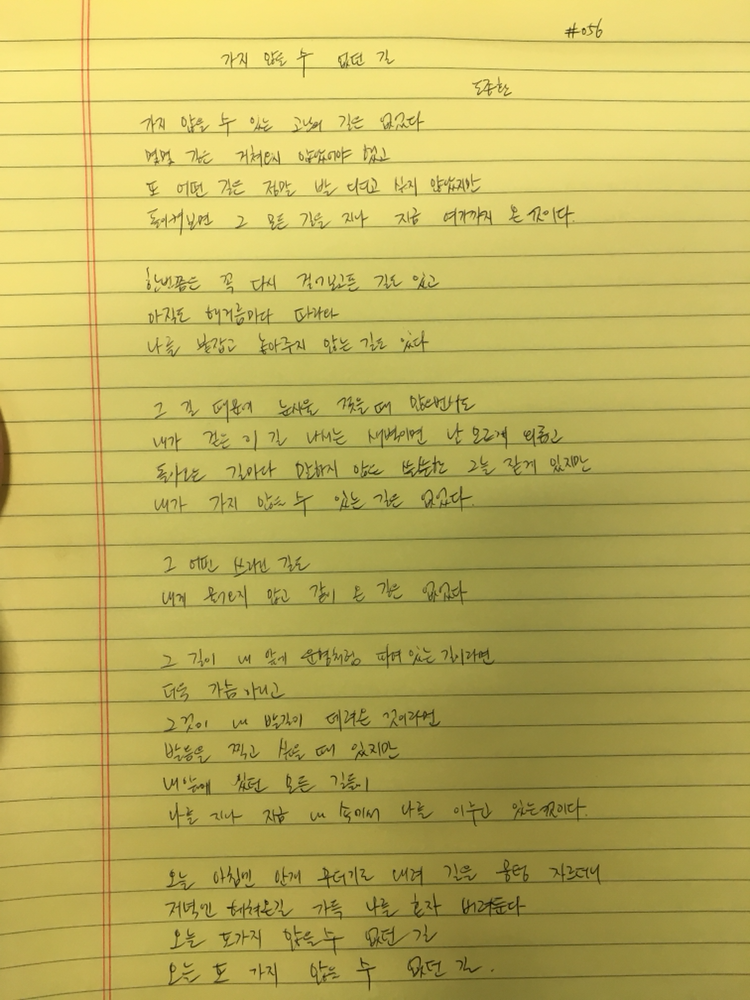 #056
가지 않을 수 없던 길
도종환
가지 않을 수 있는 고난의 길은 없었다
몇몇 길은 거쳐오지 않았어야 했고
또 어떤 길은 정말 발 디디고 싶지 않았지만
돌이켜보면 그 모든 길을 지나 지금 여기까지 온 것이다.
한번쯤은 꼭 다시 걸어보고픈 길도 있고
아직도 해거름마다 따라와
나를 붙잡고 놓아주지 않는 길도 있다
그 길 때문에 눈시울 젖을 때 많으면서도
내가 걷는 이 길 나서는 새벽이면 남 모르게 외롭고
돌아오는 길마다 말하지 않은 쓸쓸한 그늘 짙게 있지만
내가 가지 않을 수 있는 길은 없었다.
그 어떤 쓰라린 길도
내게 물어오지 않고 같이 온 길은 없었다
그 길이 내 앞에 운명처럼 파여 있는 길이라면
더욱 가슴 아리고
그것이 내 발길이 데려온 것이라면
발등을 찍고 싶을 때 있지만
내 앞에 있던 모든 길들이
나를 지나 지금 내 속에서 나를 이루고 있는 것이다.
오늘 아침엔 안개 무더기로 내려 길을 뭉텅 자르더니
저녁엔 헤쳐온길 가득 나를 혼자 버려둔다
오늘 또 가지 않을 수 없던 길
오늘 또 가지 않을 수 없던 길.